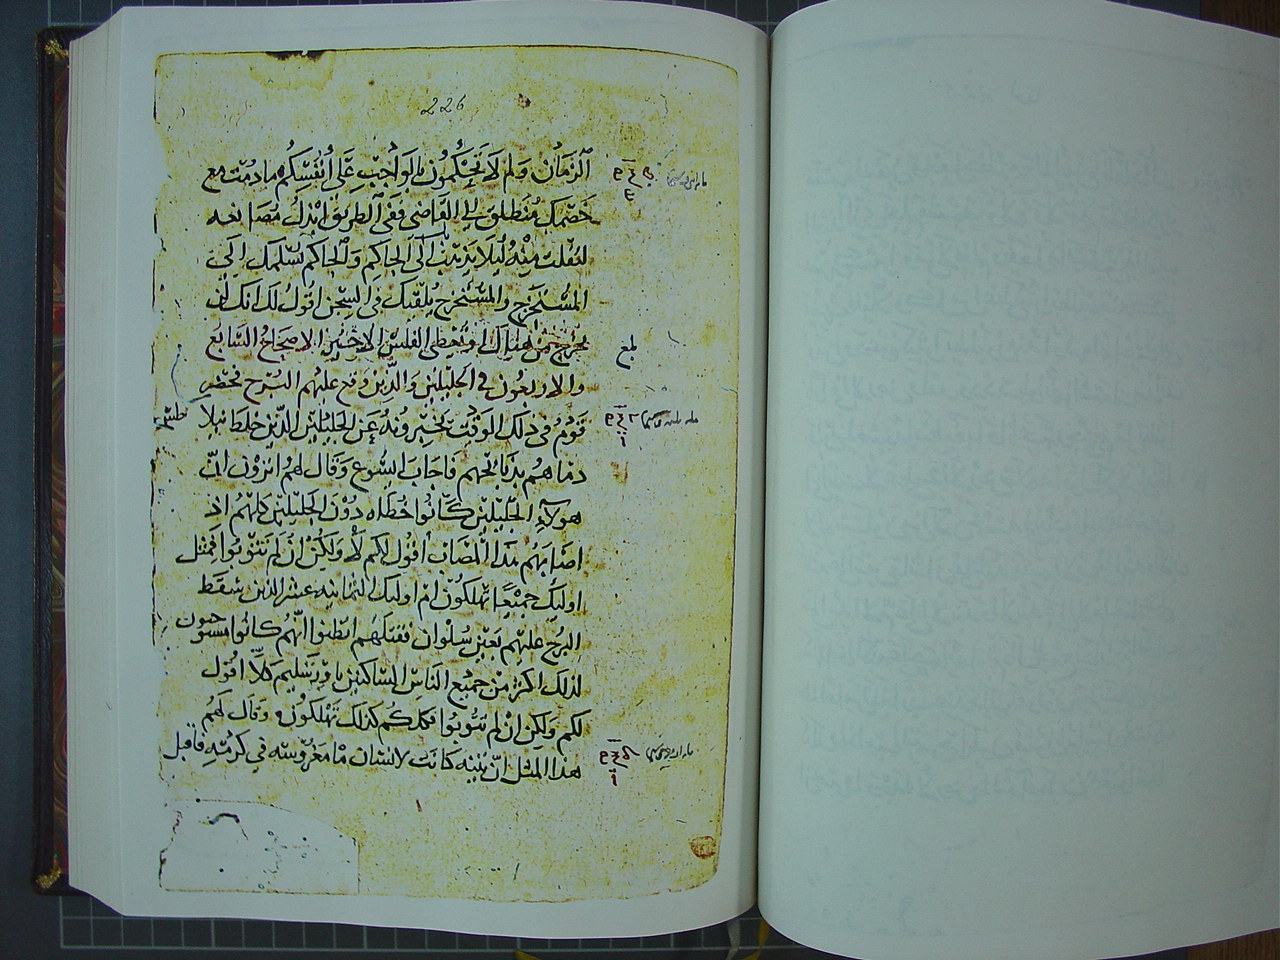 226
الزمان ولم لا تحكمون بالواجب على أنفسكم ما دمت مع
خصمك منطلق الى القاضي ففي الطريق ابذل مصانعه
لتفلت منه ليلا يذهب الى الحاكم والحاكم يسلمك الى
المستخرج والمستخرج يلقيك في السجن اقول لك انك لن
تخرج من هناك او تعطى الفلس الاخير الاصحاح السابع
والاربعون في الجليليين والذين وقع عليهم البرج فحضر
قوم في ذلك الوقت يخبرونه عن الجليليين الذين خلط بيلا
دماهم بذبايحهم فاجاب ايسوع وقال لهم اترون ان
هولاء الجليليين كانوا خطاه دون الجليليين كلهم اذ
اصابهم هذا المصاب اقول لكم لا ولكن ان لم تتوبوا فمثل
اوليك جميعا تهلكون ام اوليك الثمانيه عشر الذين سقط
البرج عليهم بعين سلوان فقتلهم اتظنوا انهم كانوا مستوجبون
لذلك اكثر من جميع الناس الساكنين باورشليم كلا اقول
لكم ولكن ان لم تتوبوا فكلكم كذلك تهلكون وقال لهم
هذا المثل ان تينه كانت لانسان ما مغروسه في كرمه فاقبل
بلغ